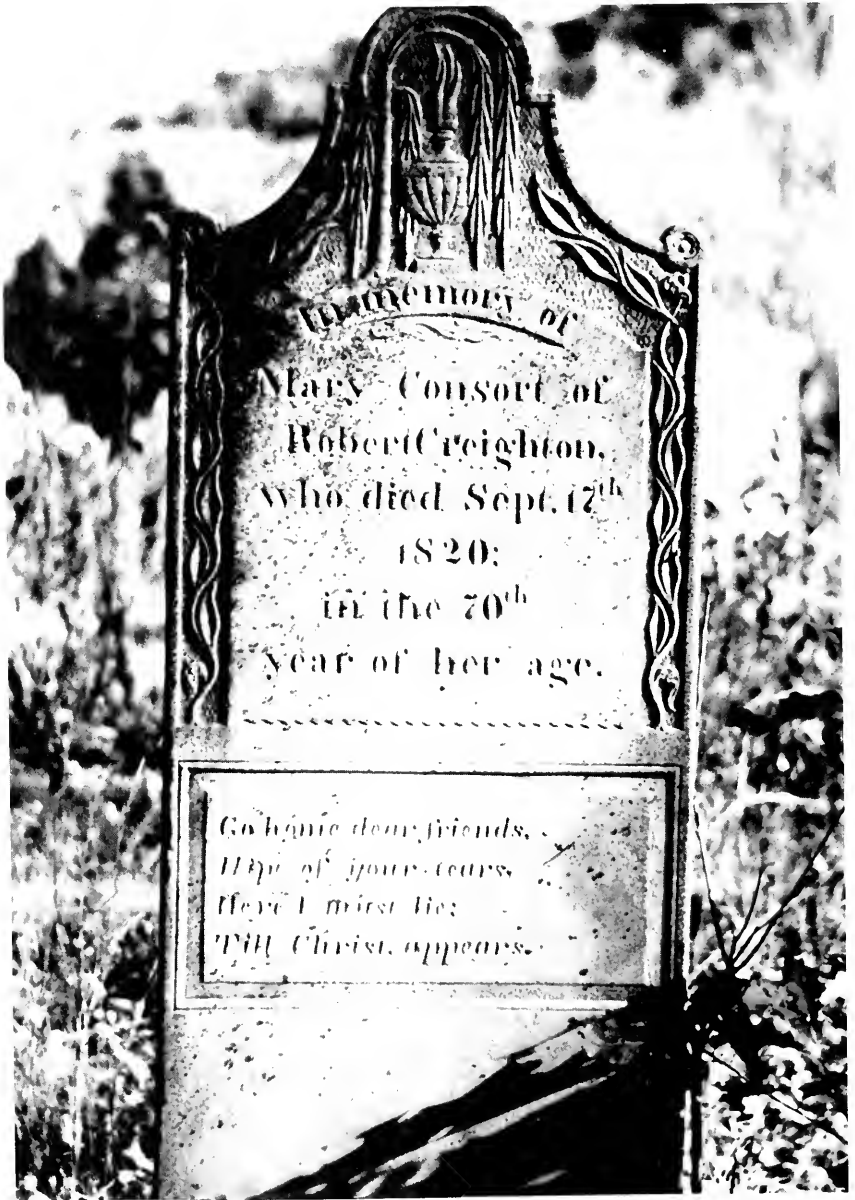 In memory of
Mary Consort of
Robert Creighton,
who died Sept. 17th
1820;
in the 70th
year of her age.
Go home dear friends,
Wipe of your tears,
Here I must lie;
Till Christ appears.